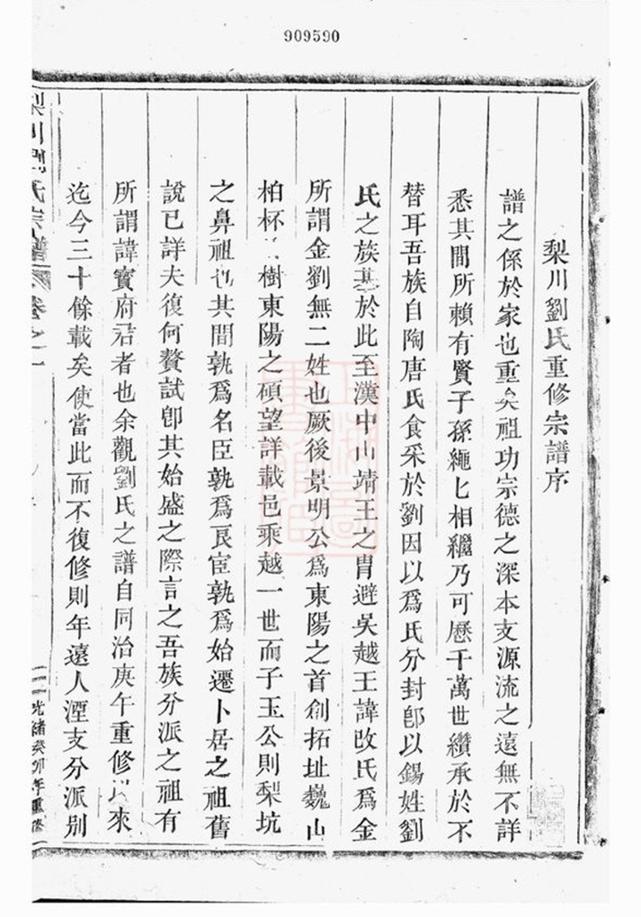 909590
梨川劉氏重修宗譜序
譜之係於家也重矣祖功宗德之深本支源流之遠無不詳
悉其間所賴有賢子孫繩匕相繼乃可歷千萬世纘承於不
替耳吾族自陶唐氏食采於劉因以爲氏分封卽以錫姓劉
氏之族基於此至漢中山靖王之胄避吳越王諱改氏爲金
所謂金劉無二姓也厥後景明公爲東陽之首創拓址巍山
柏杯樹東陽之碩望詳載邑乘越一世而子玉公則梨坑
之鼻祖也其間孰爲名臣孰爲良宦孰爲始遷卜居之祖舊
說已詳夫復何贅試卽其始盛之際言之吾族分派之祖有
所謂諱寶府君者也余觀劉氏之譜自同治庚午重修以來
迄今三十餘載矣使當此而不復修則年遠人湮支分派別
梨川劉氏宗譜 卷之一
光緒癸卯年重修